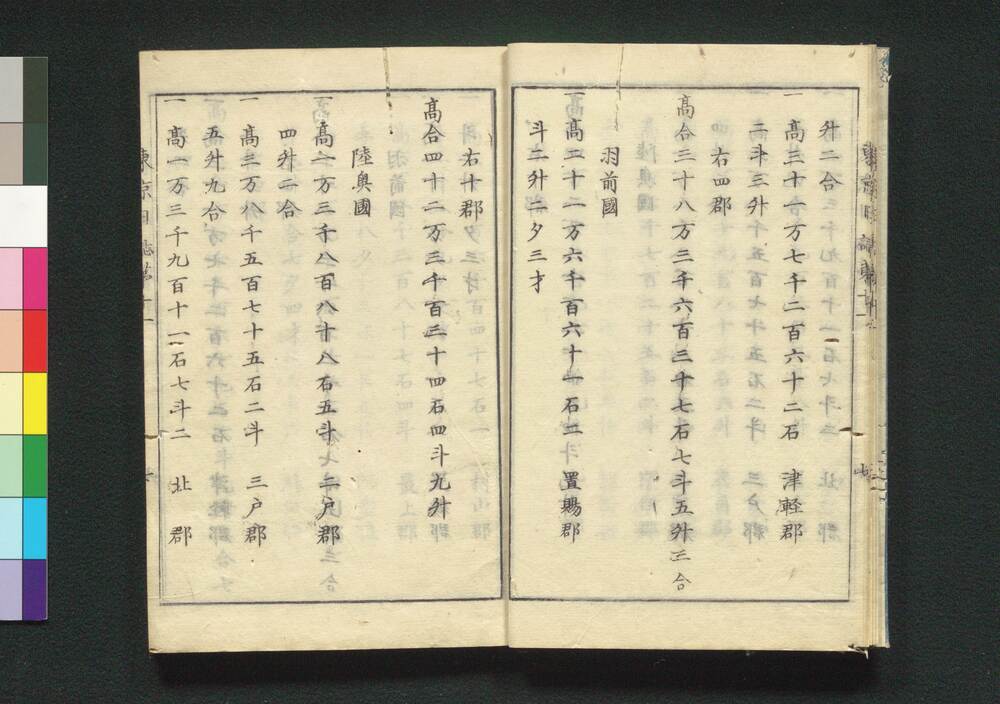 升二合
一高三十一万七千二百六十二石 津軽郡
二斗三升
右四郡
高合三十八万三千六百三十七石七斗五升三合
羽前國
一高二十二万六千百六十一石 置賜郡
斗二升二夕三才
右十郡
高合四十二万三千百三十四石四斗九升
陸奥國
一高一万三千八百八十八石五斗 二戸郡
四升二合
一高三万八千五百七十五石二斗 三戸郡
五升九合
一高一万三千九百十一石七斗二 北郡
東京日誌第十一